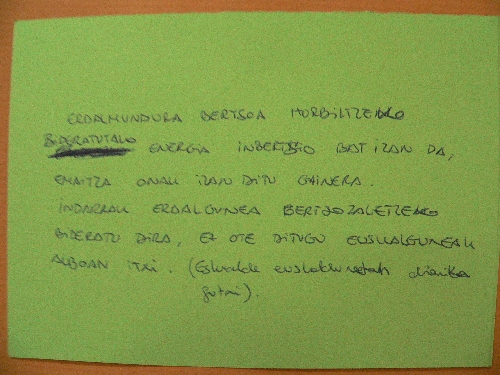 ERDALMUNDURA BERTSOA HURBILTZEKO
BIDERATUTAKO ENERGIA INBERTSIO BAT IZAN DA,
EMAITZA ONAK IZAN DITU GAINERA.
INDARRAK ERDALGUNEA BERTSOZALETZEKO
BIDERATU DIRA, EZ OTE DITUGU EUSKALGUNEAK
ALBOAN ITXI. (Eskualde euskaldunetatik
gutxi).